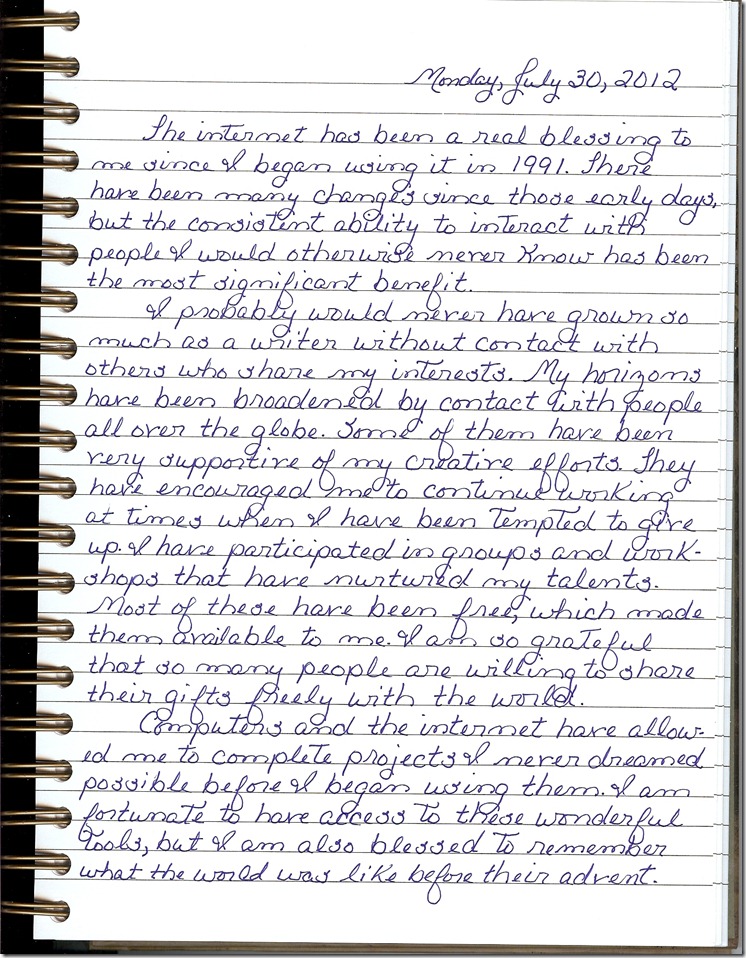 Monday, July 30, 2012
The internet has been a real blessing to
me since I began using it in 1991. There
have been many changes since those early days,
but the consistent ability to interact with
people I would otherwise never know has been
the most significant benefit.
I probably would never have grown so
much as a writer without contact with
others who share my interests. My horizons
have been broadened by contact with people
all over the globe. Some of them have been
very supportive of my creative efforts. They
have encouraged me to continue working
at times when I have been tempted to give
up. I have participated in groups and work-
shops that have nurtured my talents.
Most of these have been free, which made
them available to me. I am so grateful
that so many people are willing to share
their gifts freely with the world.
Computers and the internet have allow-
ed me to complete projects I never dreamed
possible before I began using them. I am
fortunate to have access to these wonderful
tools, but I am also blessed to remember
what the world was like before their advent.